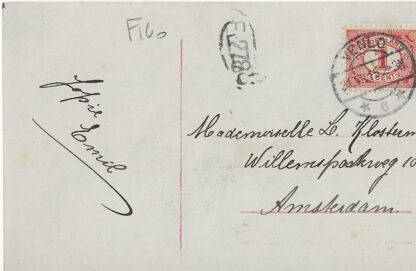 F160
F.278
VENLO
1
CENT
6
Jopie
Emiel
Mademoiselle L. Klosterm
Willemsparkweg 10
Amsterdam